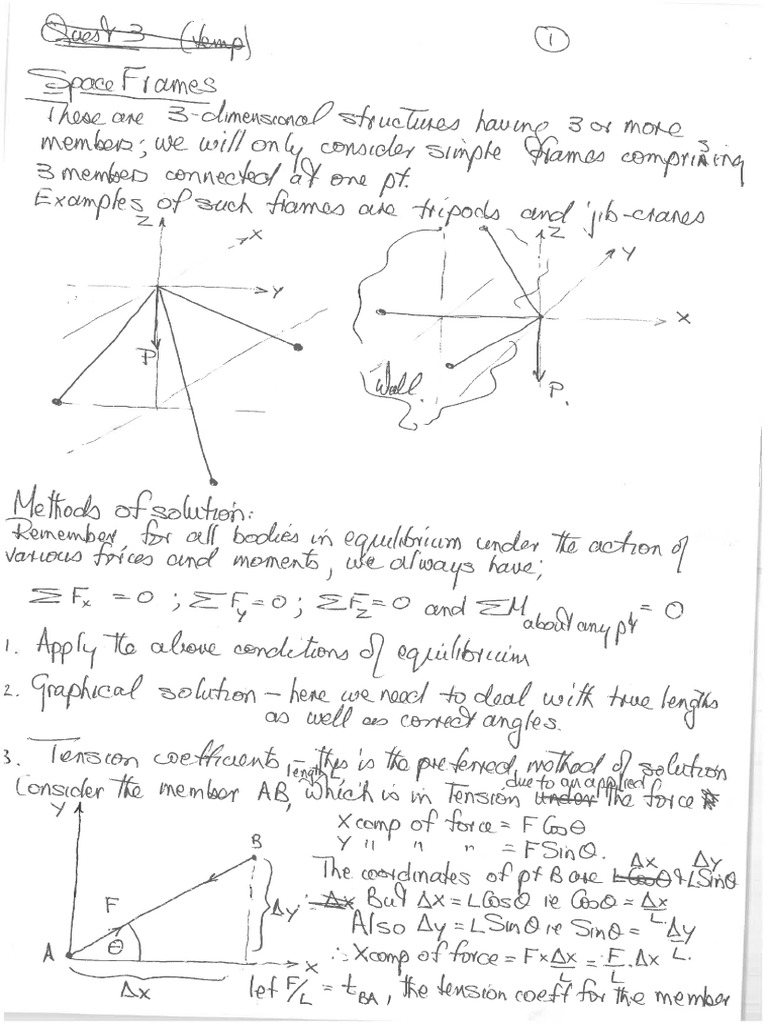 Quest 3 (Vemp)
1
Space Frames
These are 3-dimensional structures having 3 or more
members; we will only consider simple frames comprising
3 members connected at one pt.
Examples of such frames are tripods and jib-cranes
Z
X
Y
P
Z
Y
X
Wall.
P.
Methods of solution:
Remember, for all bodies in equilibrium under the action of
various forces and moments, we always have;
ΣFx = 0 ; ΣFy = 0 ; ΣFz = 0 and ΣM about any pt = 0
1. Apply the above conditions of equilibrium
2. Graphical solution - here we need to deal with true lengths
as well as correct angles.
3. Tension coefficients, - this is the preferred method of solution
Consider the member AB, length L, which is in Tension under due to an applied the force
Y
X comp of force = F Cosθ
Y " " " = F Sinθ.
The coordinates of pt B are LCosθ & LSinθ Δx Δy
Δx But Δx = LCosθ ie Cosθ = Δx/L
Also Δy = LSinθ ie Sinθ = Δy/L.
∴ X comp of force = F x Δx/L = F/L . Δx
let F/L = tBA, the tension coeff for the member
B
F
Δy
A
θ
X
Δx